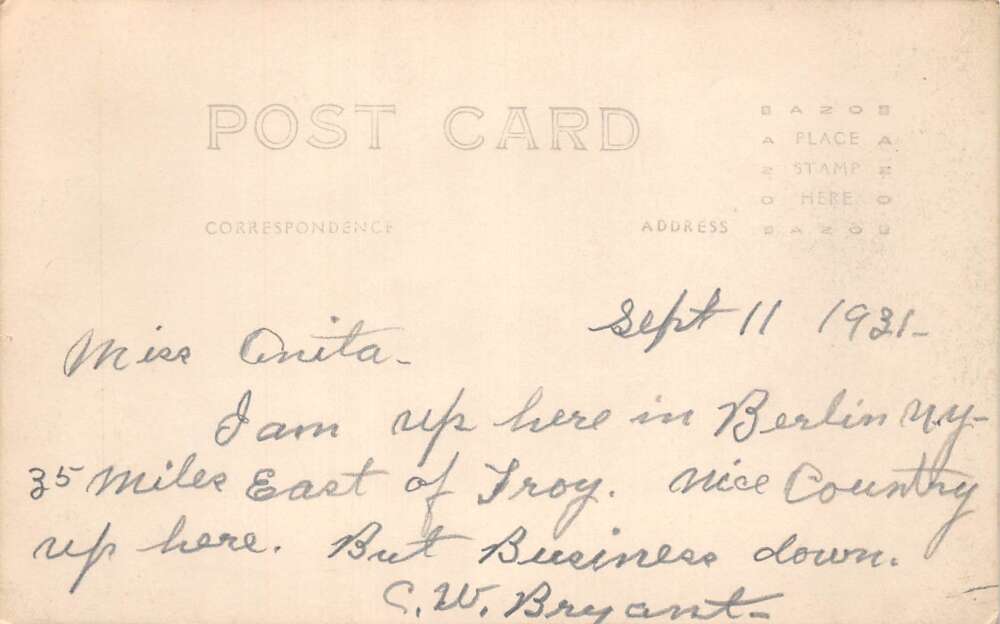 POST CARD
BAZOB
A PLACE A
Z STAMP Z
O HERE O
BAZOB
CORRESPONDENCE
ADDRESS
Sept 11 1931-
Miss Anita-
I am up here in Berlin N.Y-
35 Miles East of Troy. Nice Country
up here. But Business down.
C. W. Bryant-